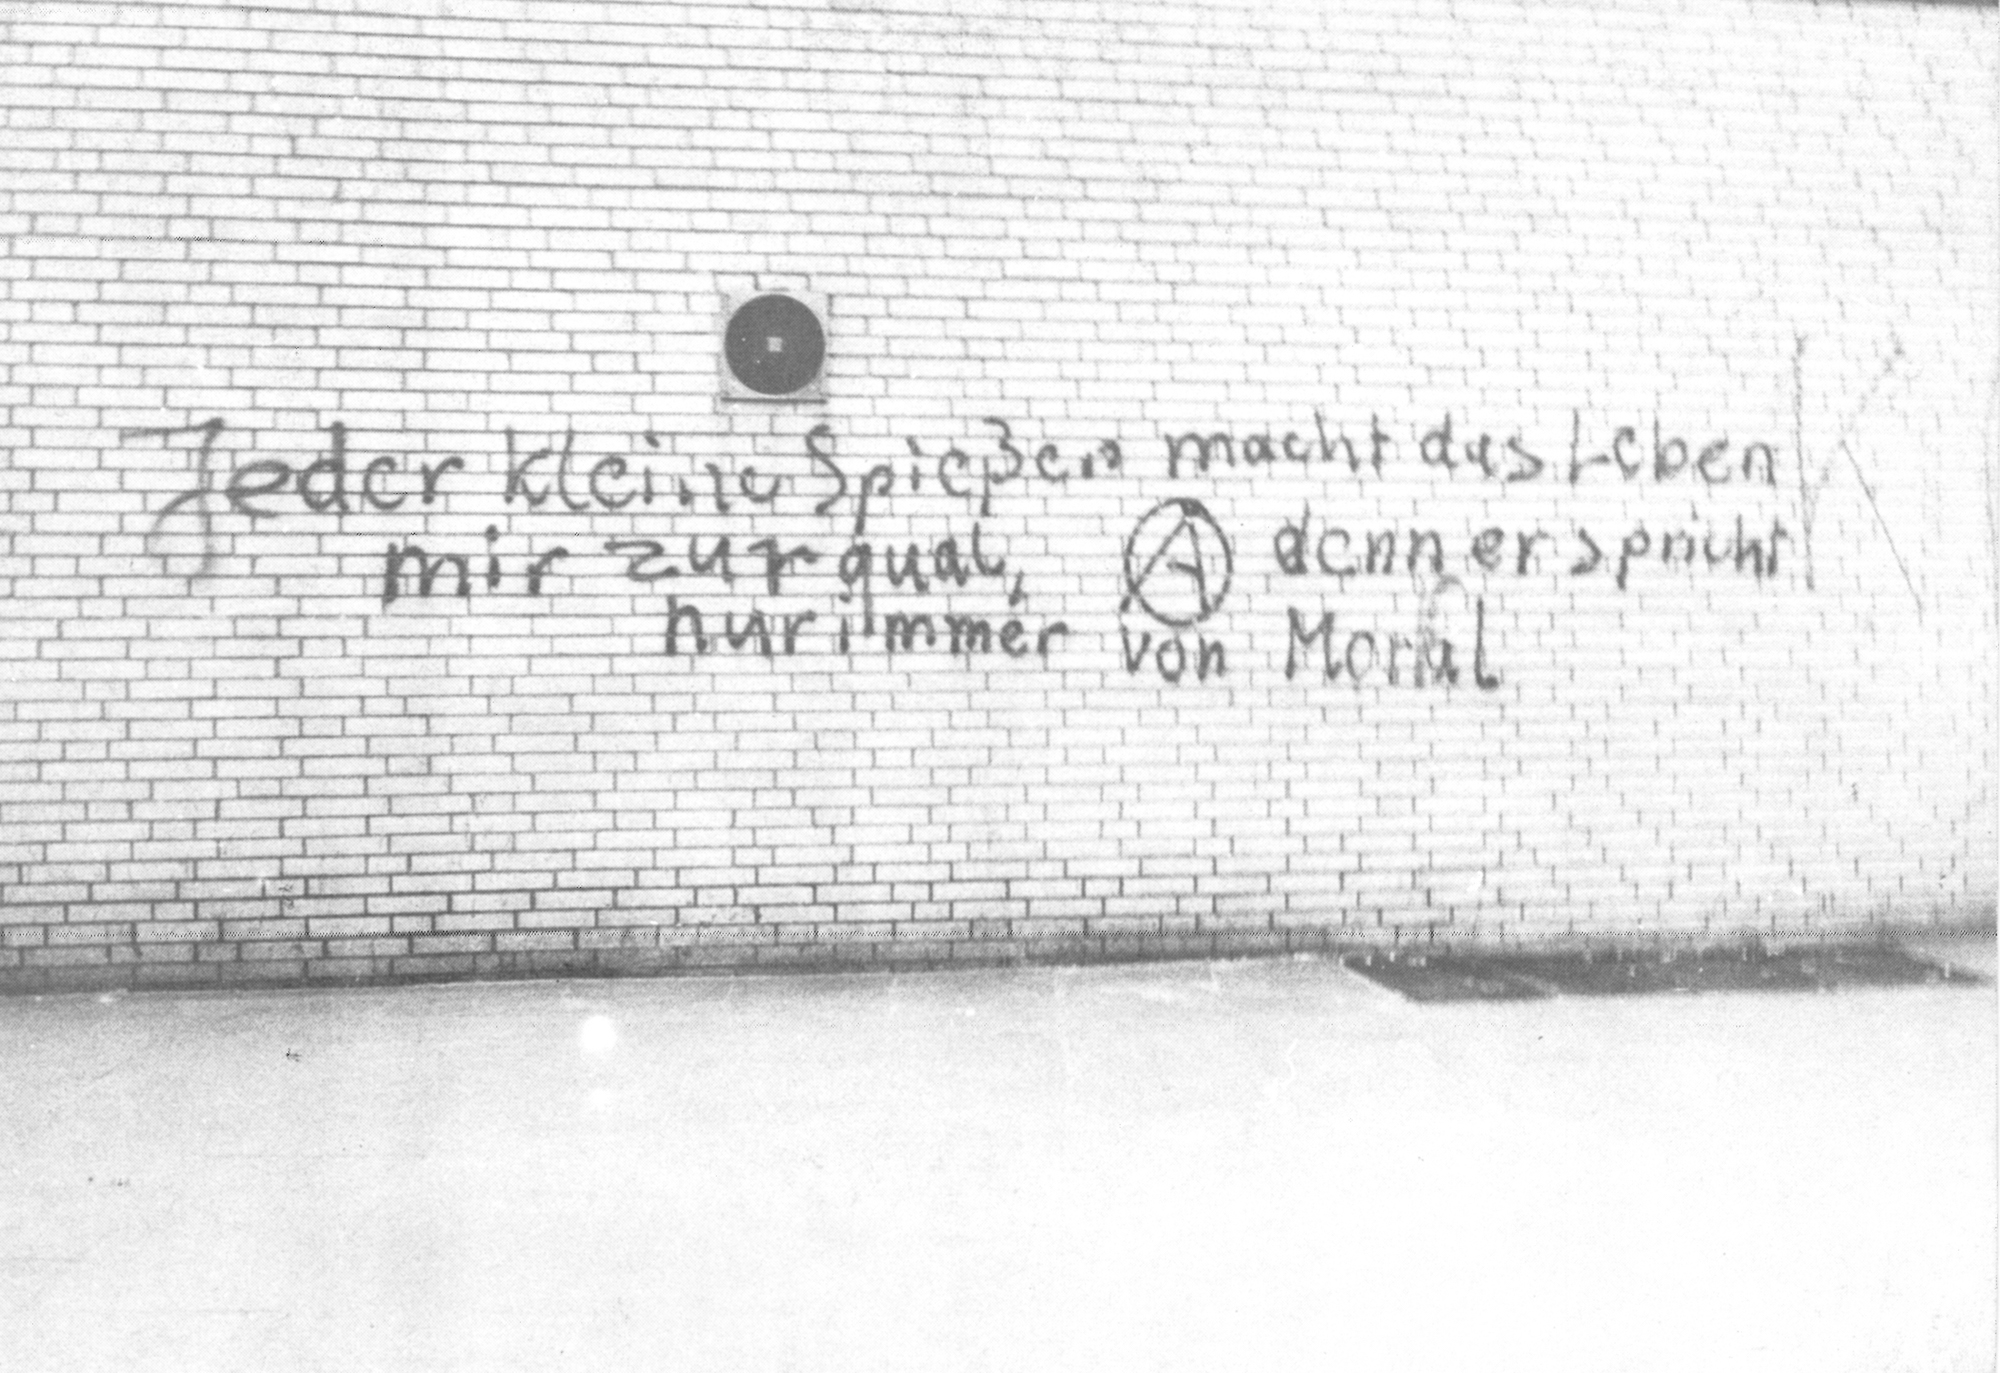 Jeder kleine Spießer macht das Leben
mir zur qual, Ⓐ denn er spricht
nur immer von Moral